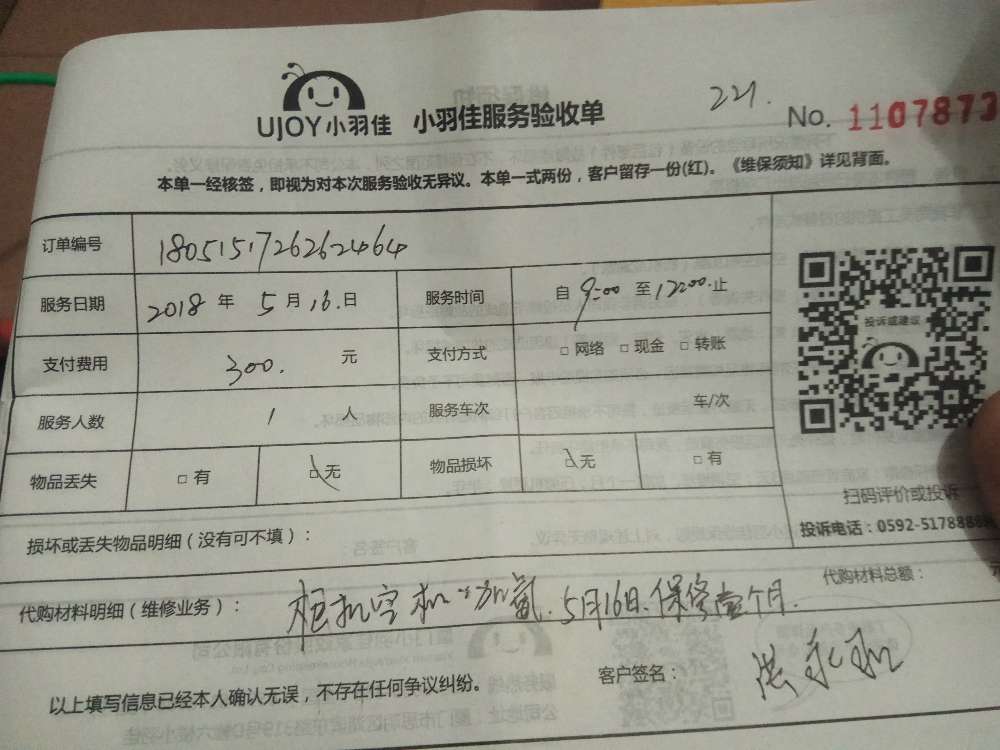 221.
UJOY小羽佳 小羽佳服务验收单 No. 1107873
本单一经核签，即视为对本次服务验收无异议。本单一式两份，客户留存一份(红)。《维保须知》详见背面。
订单编号 1805151726262464
服务日期 2018 年 5 月 16 日 服务时间 自 9:00 至 12:00 止
支付费用 300. 元 支付方式 □ 网络 □ 现金 □ 转账
服务人数 1 人 服务车次 车/次
物品丢失 □ 有 □ 无 物品损坏 □ 无 □ 有
投诉或建议
扫码评价或投诉
投诉电话：0592-5178888
损坏或丢失物品明细（没有可不填）：
代购材料总额：
代购材料明细（维修业务）： 柜机空机 加氟. 5月16日. 保 壹个月.
以上填写信息已经本人确认无误，不存在任何争议纠纷。
客户签名：